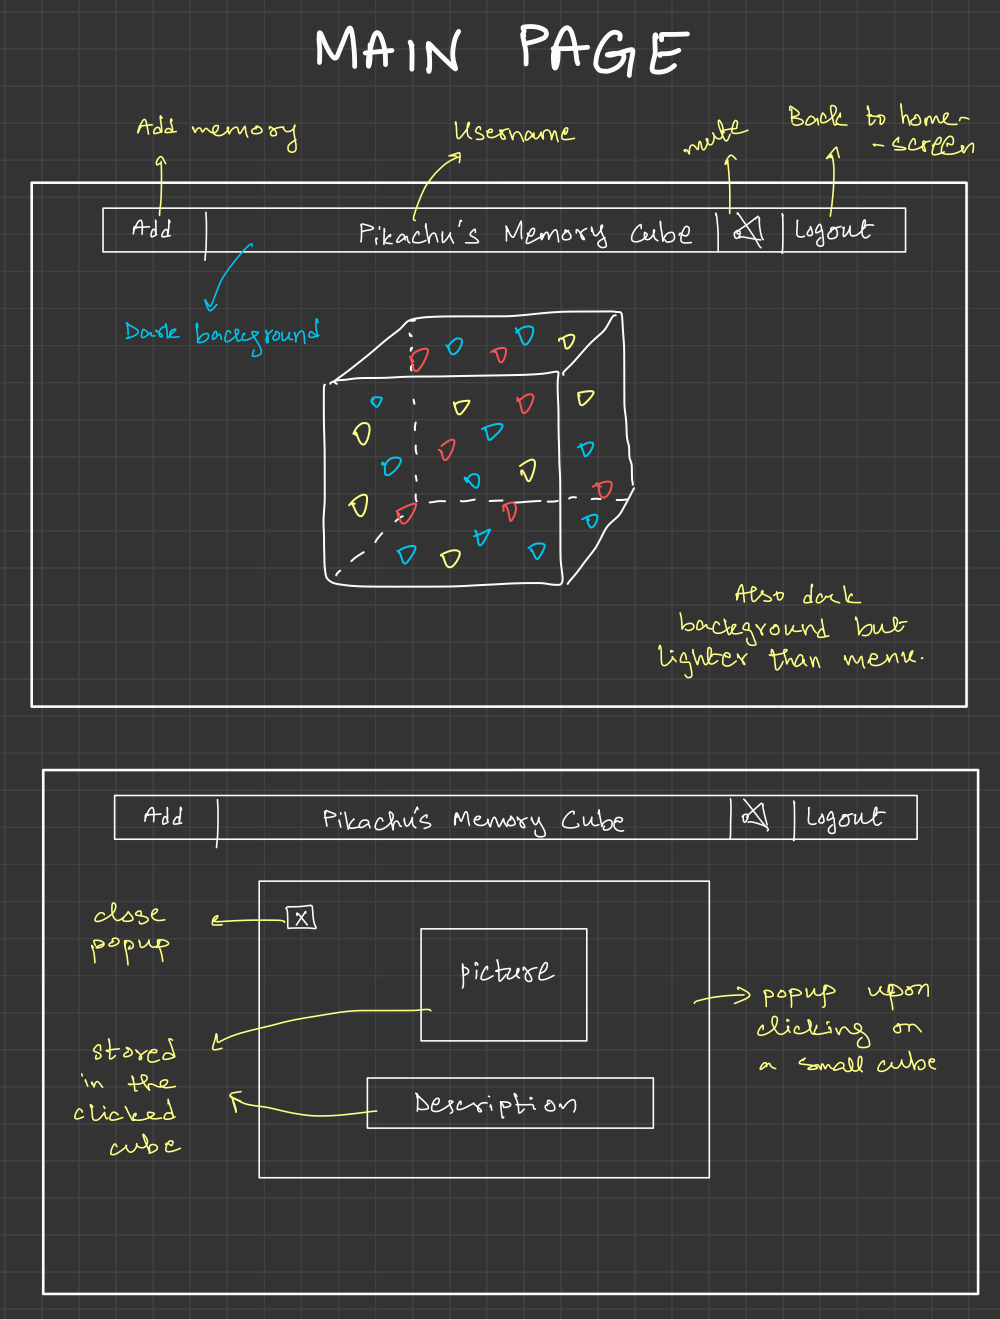 MAIN PAGE
Add memory
Username
mute
Back to home-
-screen
Add
Pikachu's Memory Cube
Logout
Dark background
Also dark
background but
lighter than menu.
Add
Pikachu's Memory Cube
Logout
close
popup
X
picture
popup upon
clicking on
a small cube
stored
in the
clicked
cube
Description